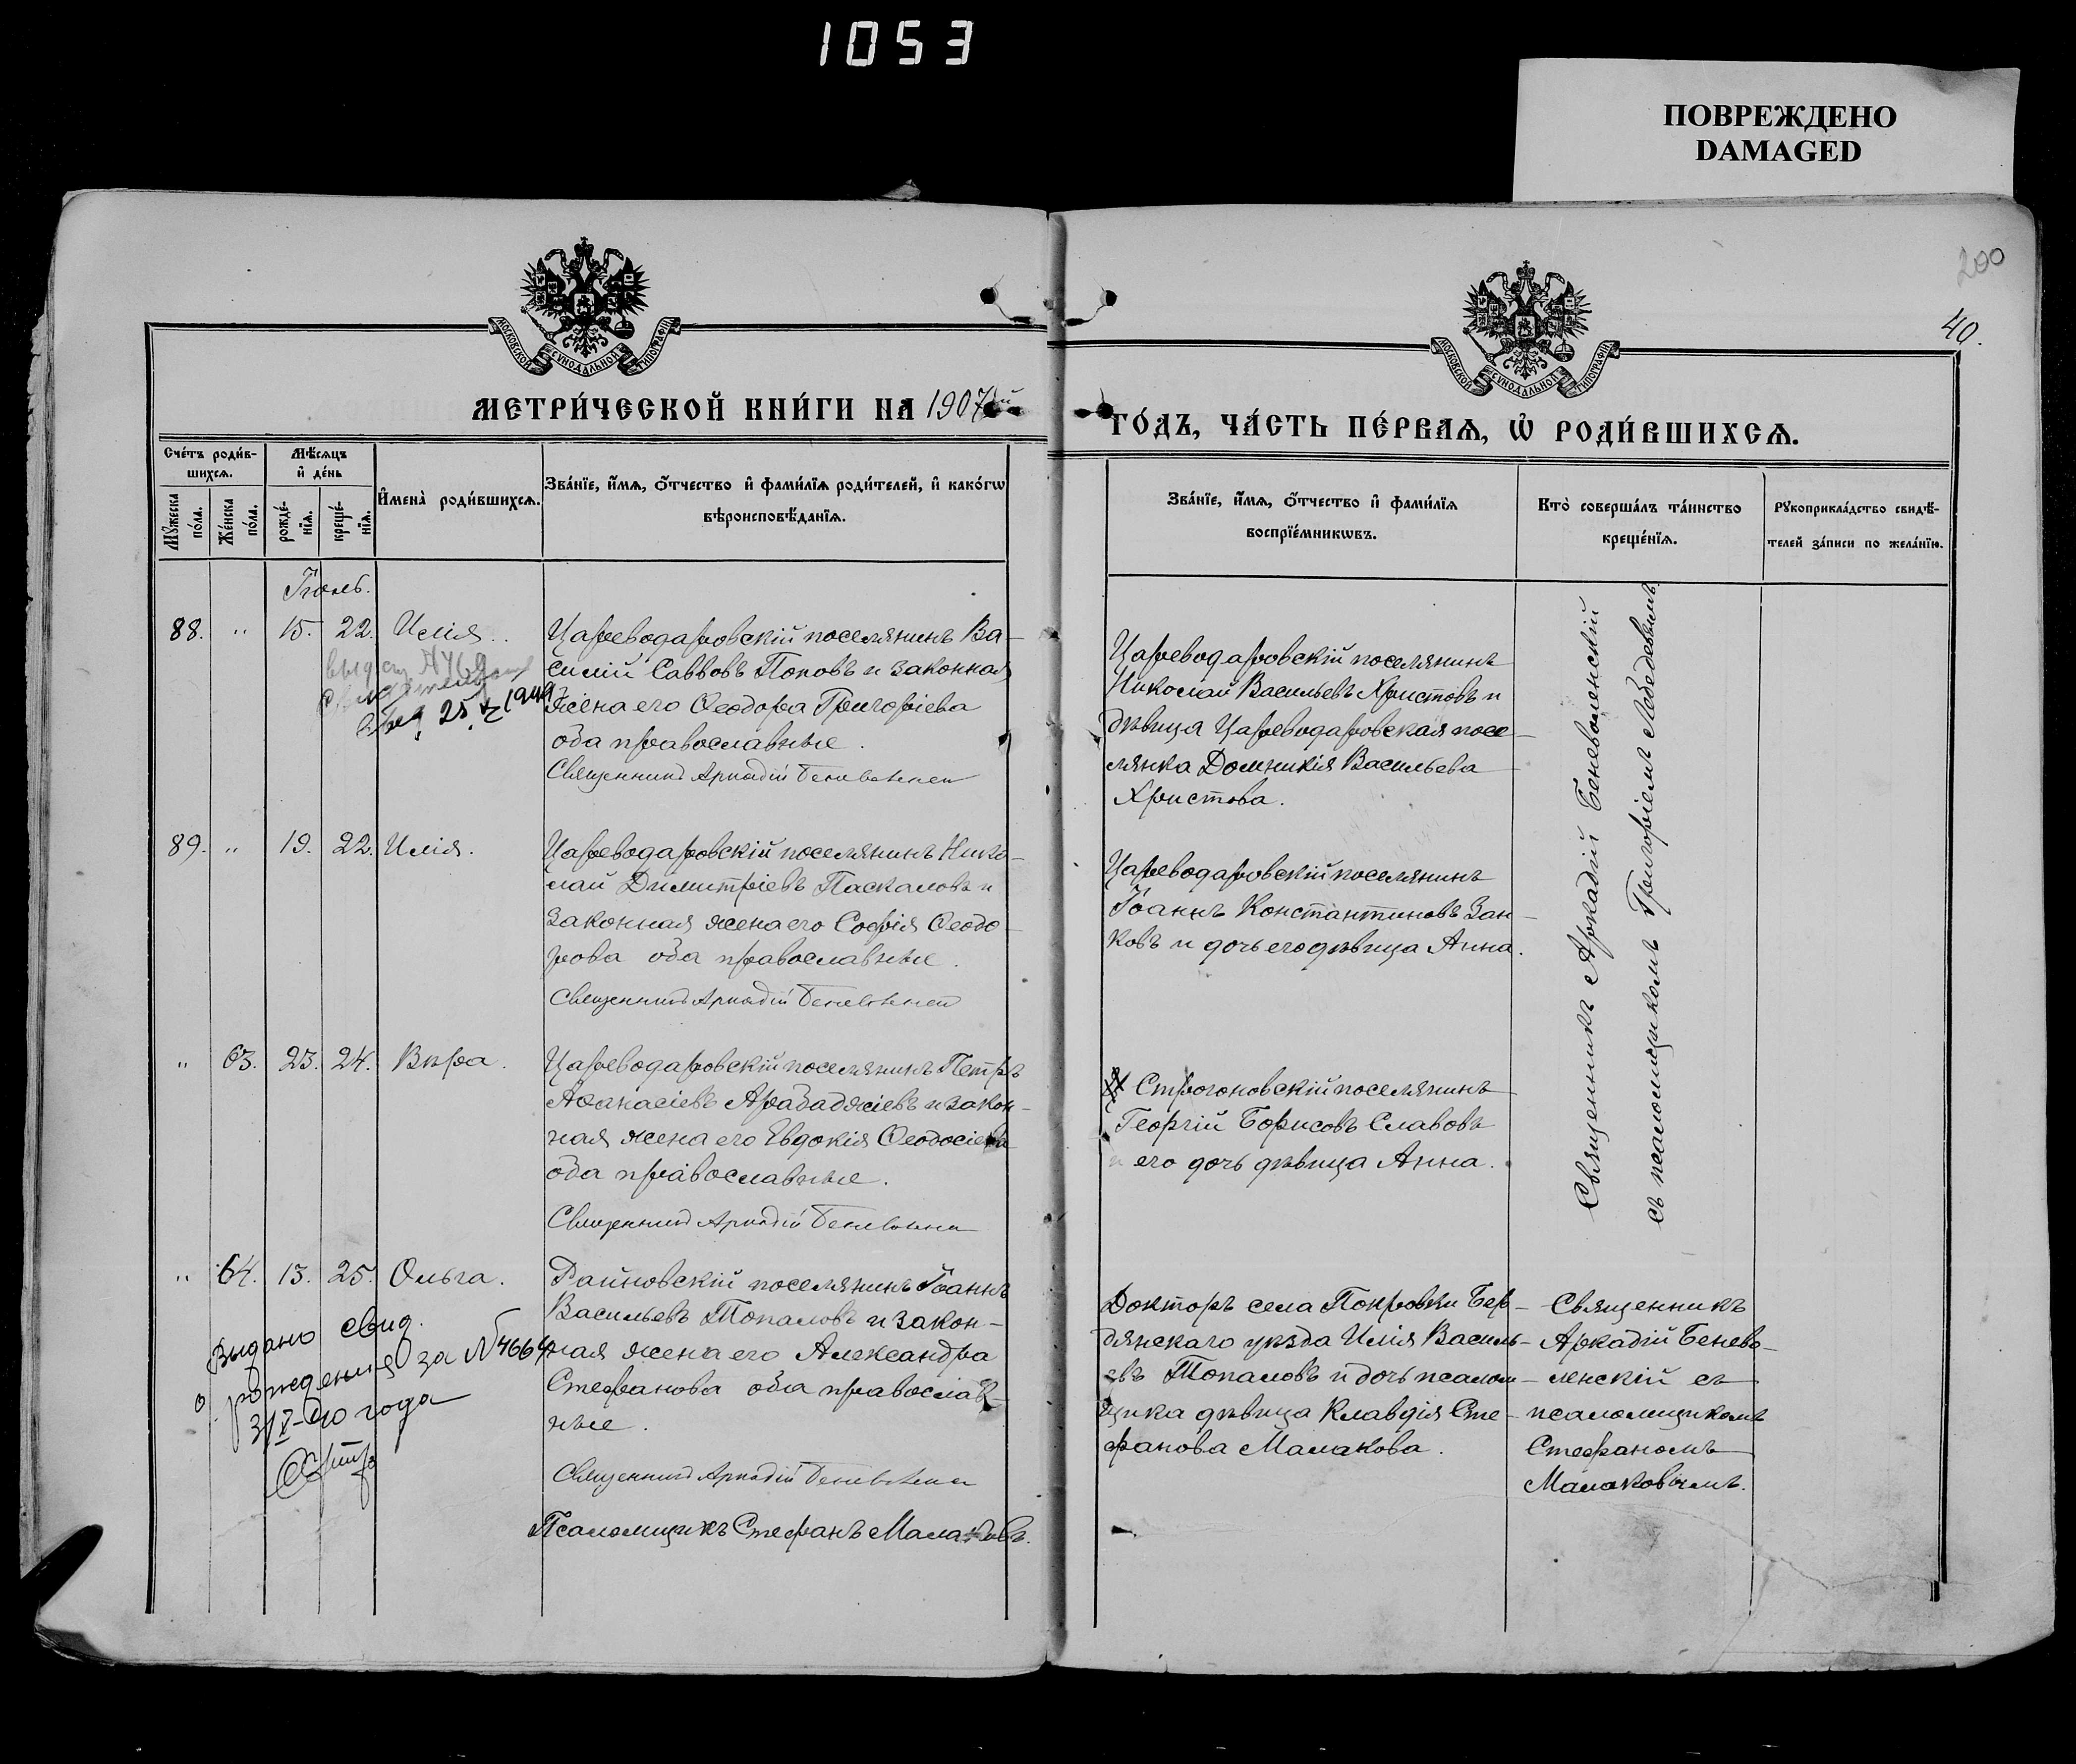 1053
ПОВРЕЖДЕНО
DAMAGED
200
40.
МОСКОВСКОЙ СѴНОДАЛЬНОЙ ТИПОГРАФІИ
МОСКОВСКОЙ СѴНОДАЛЬНОЙ ТИПОГРАФІИ
МЕТРИ́ЧЕСКОЙ КНИ́ГИ НА 1907
ГО́ДЪ, ЧА́СТЬ ПЕ́РВАѦ, Ѡ҆ РОДИ́ВШИХСѦ.
Сче́тъ роди́в-
шихсѧ.
Мꙋ́жеска по́ла.
Же́нска по́ла.
Мѣ́сѧцъ
и҆ де́нь
рожде́-
нїѧ.
креще́-
нїѧ.
И҆мена̀ роди́вшихсѧ.
Зва́нїе, и҆́мѧ, ѻ҆́тчество и҆ фами́лїѧ роди́телей, и҆ како́гѡ
вѣроисповѣ́данїѧ.
Зва́нїе, и҆́мѧ, ѻ҆́тчество и҆ фами́лїѧ
воспрїе́мникѡвъ.
Кто̀ соверша́лъ та́инство
креще́нїѧ.
Рꙋкоприкла́дство свидѣ́-
телей за́писи по жела́нїю.
Іюль.
88. " 15. 22. Илія.
Цареводаровскій поселянинъ Ва-
силій Саввовъ Поповъ и законная
жена его Ѳеодора Григоріева
оба православные.
Священникъ Аркадій Беневоленскій
25 1949
Цареводаровскій поселянинъ
Николай Васильевъ Христовъ и
дѣвица Цареводаровская посе-
лянка Домникія Васильева
Христова.
89. " 19. 22. Илія.
Цареводаровскій поселянинъ Нико-
лай Димитріевъ Паскаловъ и
законная жена его Софія Ѳеодо-
рова оба православные.
Священникъ Аркадій Беневоленскій
Цареводаровскій поселянинъ
Іоаннъ Константиновъ Зан-
ковъ и дочь его дѣвица Анна.
" 63. 23. 24. Вѣра.
Цареводаровскій поселянинъ Петръ
Аѳанасіевъ Арабаджіевъ и закон-
ная жена его Евдокія Ѳеодосіева
оба православные.
Священникъ Аркадій Беневоленскій
Строгоновскій поселянинъ
Георгій Борисовъ Славовъ
и его дочь дѣвица Анна.
Священникъ Аркадій Беневоленскій
съ псаломщикомъ Григоріемъ Лебедевымъ
" 64. 13. 25. Ольга.
Райновскій поселянинъ Іоаннъ
Васильевъ Топаловъ и закон-
ная жена его Александра
Стефанова оба православ-
ные.
Священникъ Аркадій Беневоленскій
Псаломщикъ Стефанъ Малаховъ.
Выдано свид.
о рождении за № 4664
3/V-40 года
Докторъ села Покровки Бер-
дянскаго уѣзда Илія Василь-
евъ Топаловъ и дочь псалом-
щика дѣвица Клавдія Сте-
фанова Малахова.
Священникъ
Аркадій Бенево-
ленскій съ
псаломщикомъ
Стефаномъ
Малаховымъ.